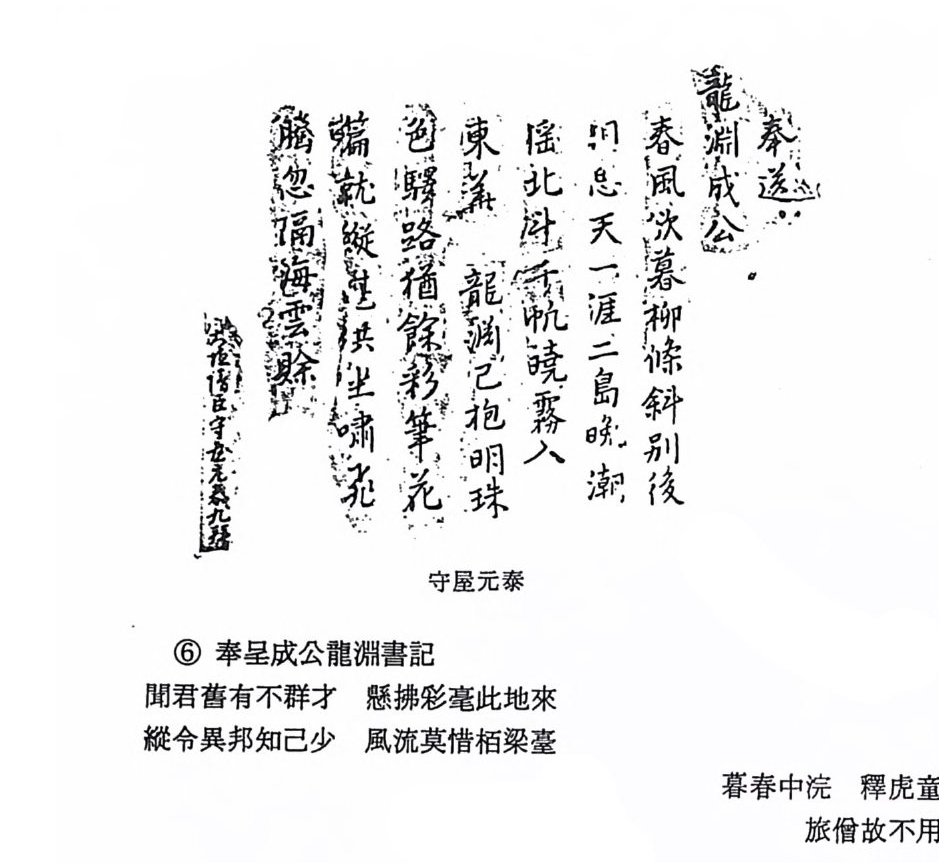 奉送
龍淵成公
春風欲暮柳條斜別後
明忘天一涯二島晚潮
搖北斗千帆曉霧入
東華 龍淵已抱明珠
色驛路猶餘彩筆花
篇就縱 供坐嘯
臍忽隔海雲賖
臣守屋元泰九
守屋元泰
⑥ 奉呈成公龍淵書記
聞君舊有不群才 懸拂彩毫此地來
縱令異邦知己少 風流莫惜栢梁臺
暮春中浣 釋虎童
旅僧故不用